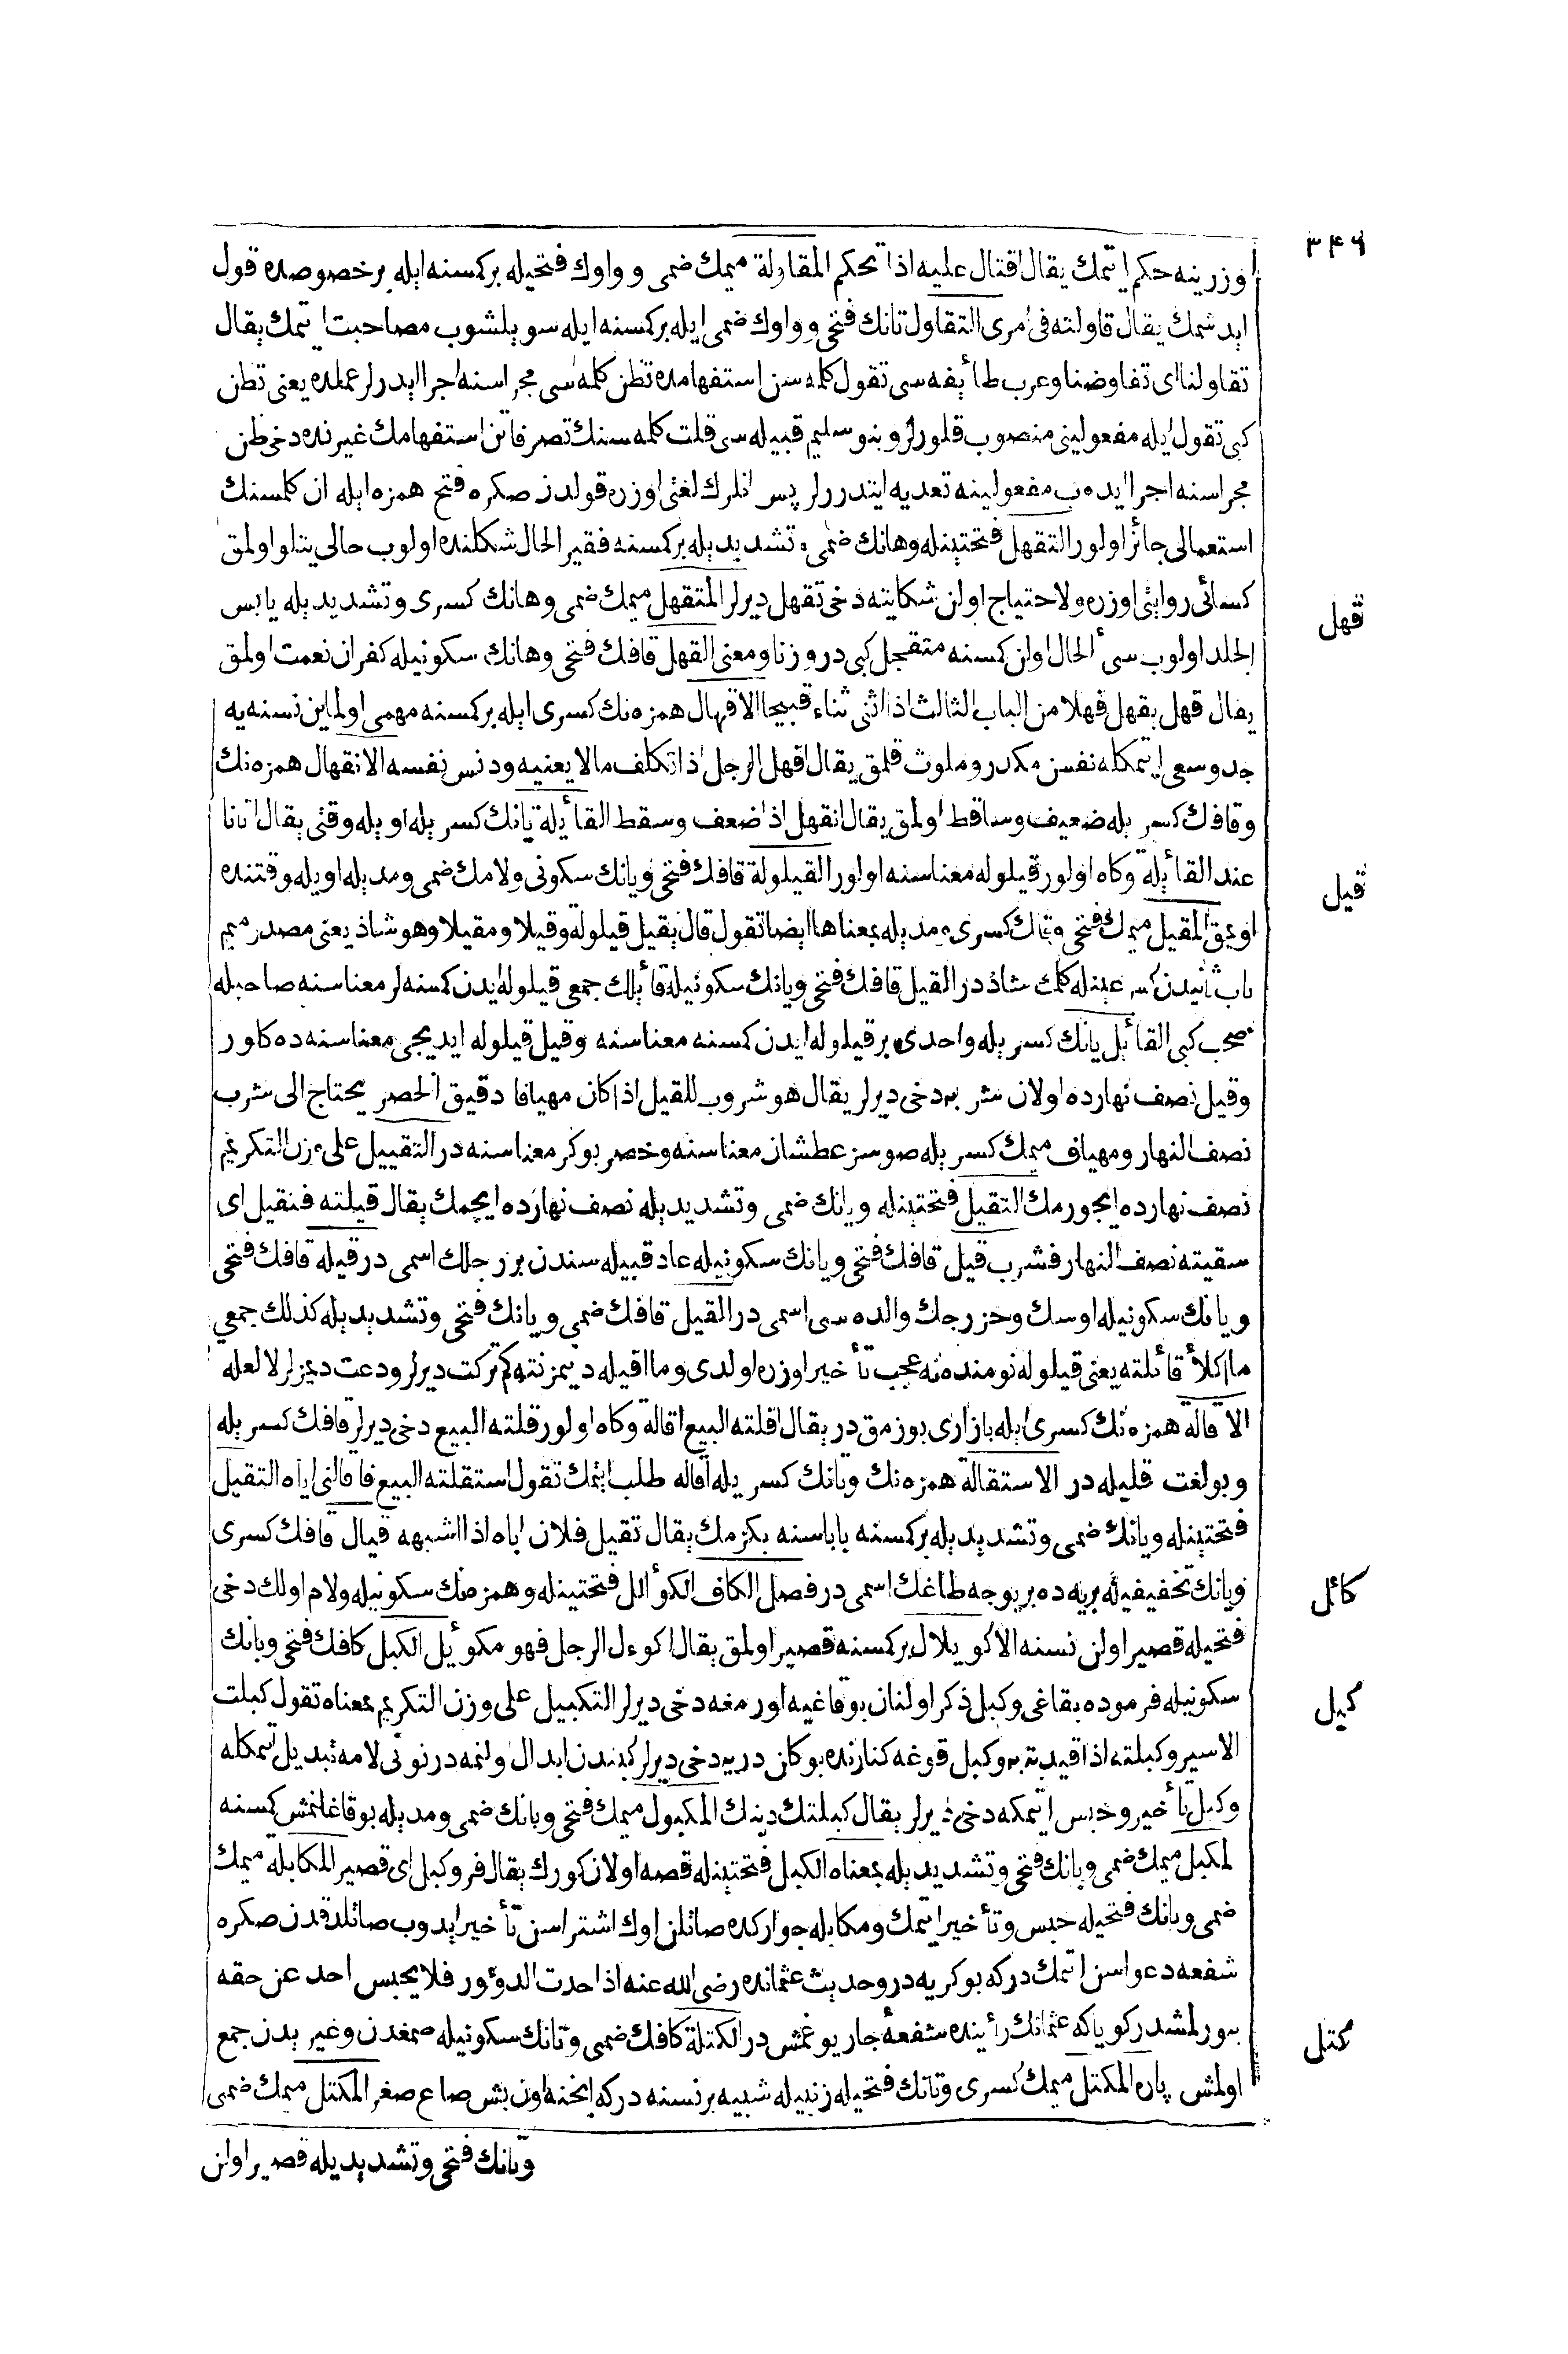 ٣٤٦
اوزرينه حكم ايتمك يقال اقتال عليه اذا تحكم المقاولة ميمك ضمى و واوك فتحيله بر كمسنه ايله بر خصوصده قول
ايدشمك يقال قاولته فى امرى التقاول تانك فتحى و واوك ضمى ايله بر كمسنه ايله سويلشوب مصاحبت ايتمك يقال
تقاولنا اى تفاوضنا و عرب طائفه سى تقول كلمه سن استفهامده تظن كلمه سى مجراسنه اجرا ايدرلر عملده يعنى تظن
كبى تقول ايله مفعولينى منصوب قلورلر و بنو سليم قبيله سى قلت كلمه سنك تصرفاتن استفهامك غيرنده دخى ظن
مجراسنه اجرا ايدوب مفعولينه تعديه ايتدررلر پس انلرك لغتى اوزره قولدن صكره فتح همزه ايله ان كلمسنك
استعمالى جائز اولور التقهل فتحتينله و هانك ضمى و تشديديله بر كمسنه فقير الحال شكلنده اولوب حالى يتلو اولمق
كسائى روايتى اوزره و لاحتياج اولن شكايته دخى تقهل ديرلر المتقهل ميمك ضمى و هانك كسرى و تشديديله يابس
قهل
الجلد اولوب سىء الحال اولن كمسنه متقحل كبى در وزنا و معنى القهل قافك فتحى و هانك سكونيله كفران نعمت اولمق
يقال قهل يقهل قهلا من الباب الثالث اذا اثنى ثناء قبيحا الاقهال همزه نك كسرى ايله بر كمسنه مهمى اولماين نسنه يه
جد و سعى ايتمكله نفسن مكدر و ملوث قلمق يقال اقهل الرجل اذا تكلف ما لا يعنيه و دنس نفسه الانقهال همزه نك
و قافك كسريله ضعيف و ساقط اولمق يقال انقهل اذا ضعف و سقط القائلة يانك كسريله اويله وقتى يقال اتانا
عند القائلة و كاه اولور قيلوله معناسنه اولور القيلولة قافك فتحى و يانك سكونى و لامك ضمى و مديله اويله وقتنده
قيل
اويمق المقيل ميمك فتحى و قافك كسرى و مديله بمعناها ايضا تقول قال يقيل قيلولة و قيلا و مقيلا و هو شاذ يعنى مصدر ميم
باب ثانيدن كسر عينله كلمك شاذدر القيل قافك فتحى و يانك سكونيله قائلك جمعى قيلوله ايدن كمسنه لر معناسنه صاحبله
صحب كبى القائل يانك كسريله واحدى بر قيلوله ايدن كمسنه معناسنه و قيل قيلوله ايديجى معناسنه ده كلور
و قيل نصف نهارده اولان شربه دخى ديرلر يقال هو شروب للقيل اذا كان مهيافا دقيق الخصر يحتاج الى شرب
نصف النهار و مهياف ميمك كسريله صوسز عطشان معناسنه و خصر بوكر معناسنه در التقييل على وزن التكريم
نصف نهارده ايچورمك التقيل فتحتينله و يانك ضمى و تشديديله نصف نهارده ايچمك يقال قيلته فتقيل اى
سقيته نصف النهار فشرب قيل قافك فتحى و يانك سكونيله عاد قبيله سندن بر رجلك اسمى در قيله قافك فتحى
و يانك سكونيله اوسك و خزرجك والده سى اسمى در القيل قافك ضمى و يانك فتحى و تشديديله كذلك جمعى
ما اكلأ قائلته يعنى قيلوله نومنده نه عجب تأخير اوزره اولدى و ما اقيله ديمزنته كم تركت ديرلر و دعت ديمزلر لا لعله
الاقالة همزه نك كسرى ايله بازارى بوزمق در يقال اقلته البيع اقالة و كاه اولور قلته البيع دخى ديرلر قافك كسريله
و بو لغت قليله در الاستقالة همزه نك و تانك كسريله اقاله طلب ايتمك تقول استقلته البيع فاقالنى اياه التقيل
فتحتينله و يانك ضمى و تشديديله بر كمسنه باباسنه بكزمك يقال تقيل فلان اباه اذا اشبهه قيال قافك كسرى
و يانك تخفيفيله بريه ده بر يوجه طاغك اسمى در فصل الكاف الكوألل فتحتينله و همزه نك سكونيله و لام اولك دخى
كائل
فتحيله قصير اولن نسنه الاكويلال بر كمسنه قصير اولمق يقال اكوءل الرجل فهو مكوئل الكبل كافك فتحى و بانك
سكونيله فرموده بقاغى و كبل ذكر اولنان بوقاغيه اورمغه دخى ديرلر التكبيل على وزن التكريم بمعناه تقول كبلت
كبل
الاسير و كبلته اذا قيدته و كبل قوغه كنارنده بوكلن دريه دخى ديرلر كبندن ابدال اولنمه در نونى لامه تبديل ايتمكله
و كبل تأخير و حبس ايتمكه دخى ديرلر يقال كبلتك دينك المكبول ميمك فتحى و بانك ضمى و مديله بوقاغلنمش كمسنه
المكبل ميمك ضمى و بانك فتحى و تشديديله بمعناه الكبل فتحتينله قصه اولان كورك يقال فرو كبل اى قصير المكابلة ميمك
ضمى و بانك فتحيله حبس و تأخير ايتمك و مكابله جواركده صاتلن اوك اشتراسن تأخير ايدوب صاتلدقدن صكره
شفعه دعواسن ايتمك در كه بو كريه در و حديث عثمانده رضى الله عنه اذا حدت الدؤور فلا يحبس احد عن حقه
بيورلمشدر كويا كه عثمانك رأينده شفعة جار يوغمش در الكتلة كافك ضمى و تانك سكونيله صمغدن و غيريدن جمع
كتل
اولمش پاره المكتل ميمك كسرى و تانك فتحيله زنبيله شبيه بر نسنه در كه ايچنه اون بش صاع صغر المكتل ميمك ضمى
و تانك فتحى و تشديديله قصير اولن